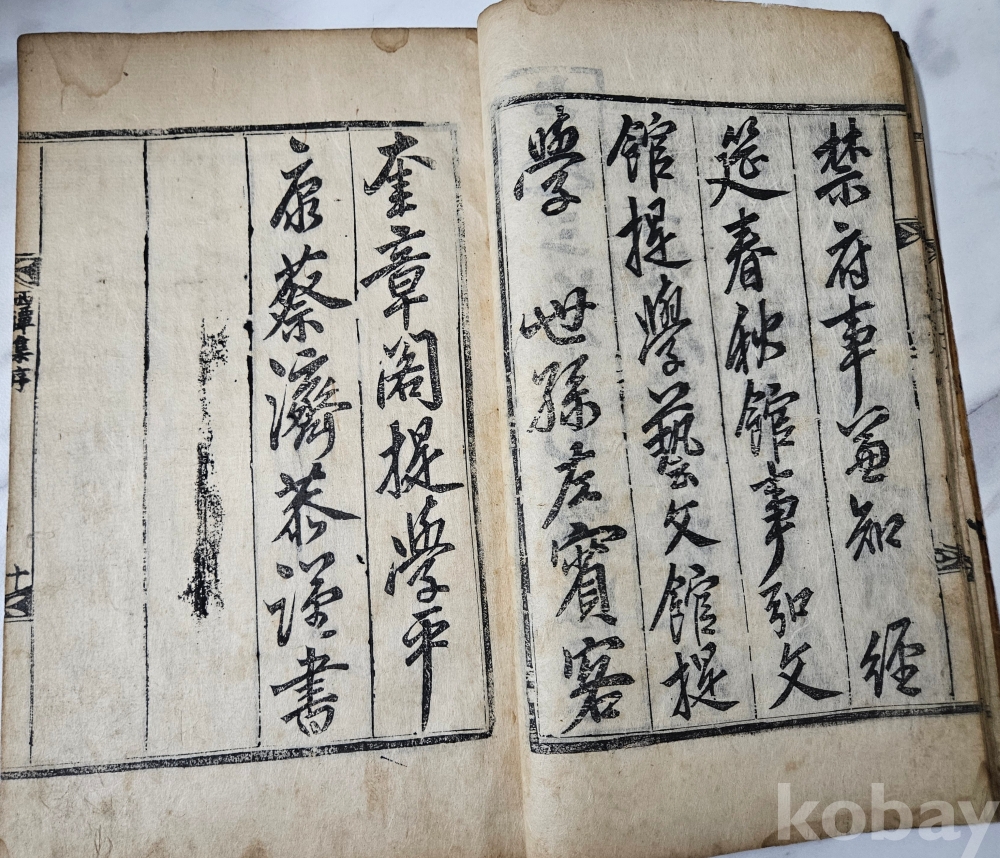 禁府事兼知 經
筵春秋館事弘文
館提學藝文館提
學 世孫左賓客
奎章閣提學平
康蔡濟恭謹書
西潭集序
十一
kobay